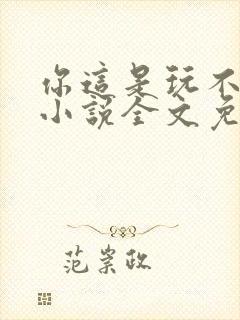 你這是玩不
小說全文免
范崇政